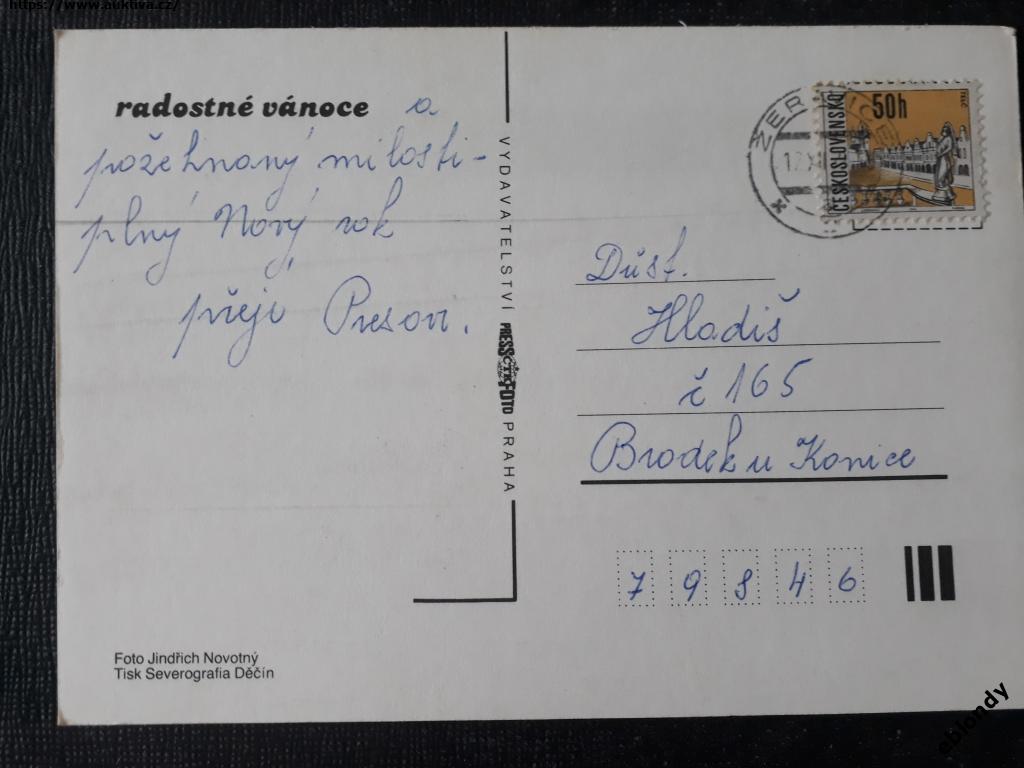 https://www.auktiva.cz/
radostné vánoce a
požehnaný milosti-
plný Nový rok
přeje
VYDAVATELSTVÍ PRESSFOTO PRAHA
ČTK
50h
ČESKOSLOVENSKO
TELČ
Důst.
Hladiš
č 165
Brodek u Konice
79846
Foto Jindřich Novotný
Tisk Severografia Děčín
eblondy